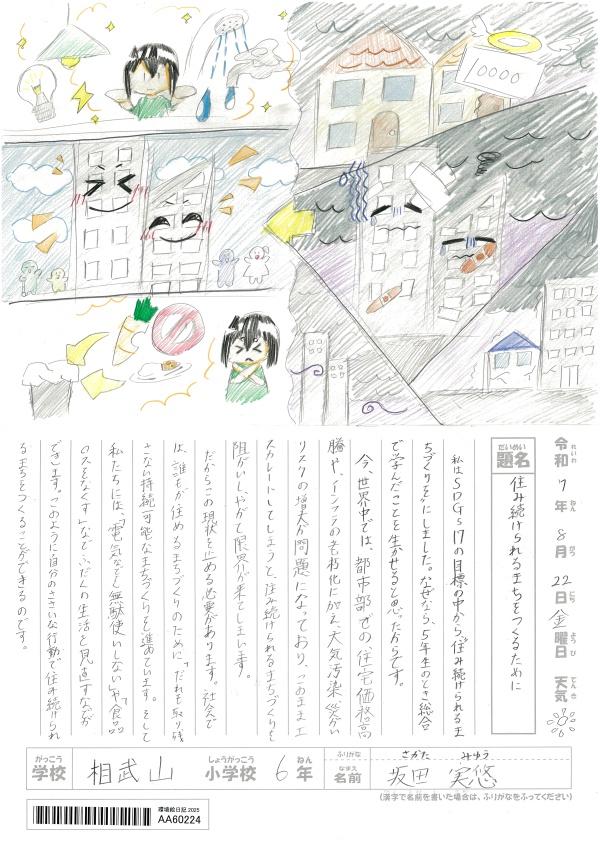 令和7年8月22日金曜日 天気
れいわ ねん がつ にち ようび てんき
だいめい
題名 住み続けられるまちをつくるために
私はSDGs17の目標の中から、「住み続けられるま
ちづくりを」にしました。なぜなら、5年生のとき総合
で学んだことを生かせると思ったからです。
今、世界中では、都市部での住宅価格高
騰や、インフラの老朽化に加え、大気汚染、災害
リスクの増大が問題になっており、このままエ
スカレートしてしまうと、住み続けられるまちづくりを
阻がいし、やがて限界が来てしまいます。
だからこの現状を止める必要があります。社会で
は、誰もが住めるまちづくりのために「だれも取り残
さない持続可能なまちづくりを進めています。そして
私たちには、「電気などを無駄使いしない」や「食品
ロスをなくす」などふだんの生活を見直すなどが
できます。このように自分のささいな行動で住み続けられ
るまちをつくることができるのです。
がっこう しょうがっこう ねん
学校 相武山 小学校 6年
ふりがな さかた みゆう
なまえ
名前 坂田 実悠
(漢字で名前を書いた場合は、ふりがなをふってください)
環境絵日記 2025
AA60224